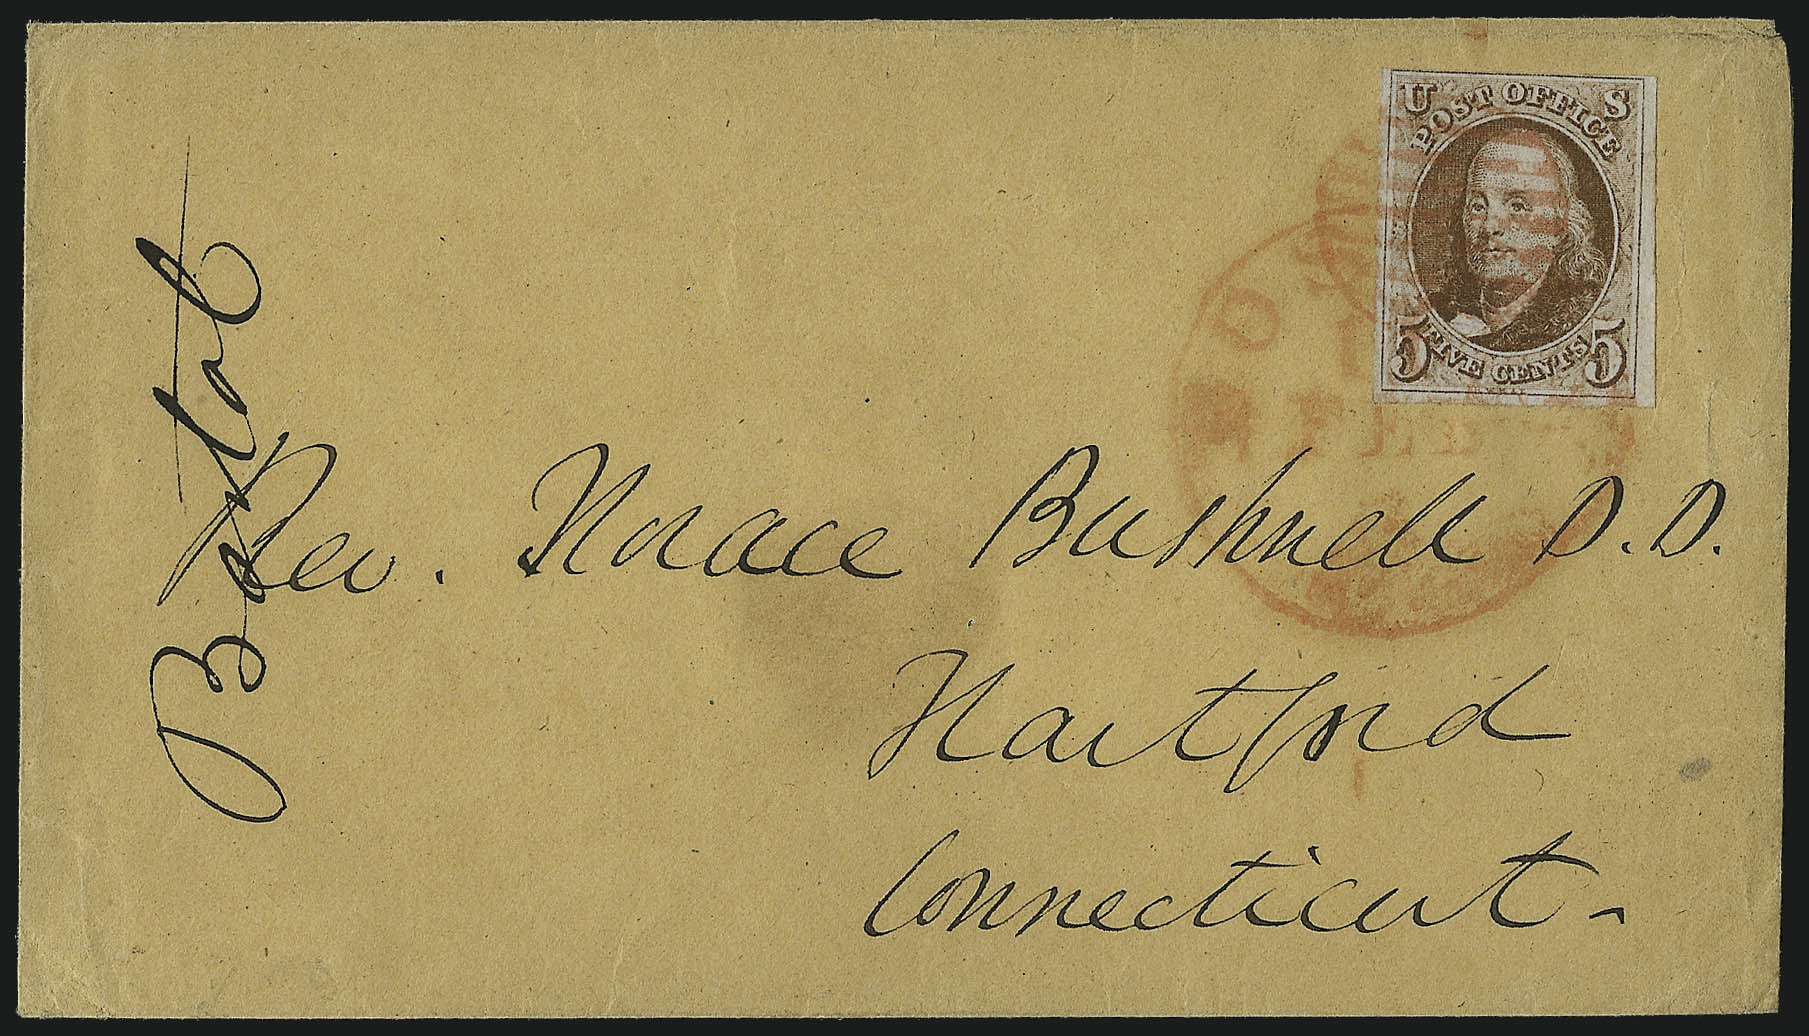 U S
POST OFFICE
5 FIVE CENTS 5
Rev. Horace Bushnell D.D.
Hartford
Connecticut -